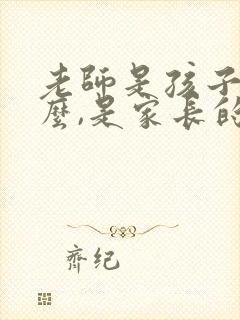 老師是孩子
麼,是家長的
齊紀